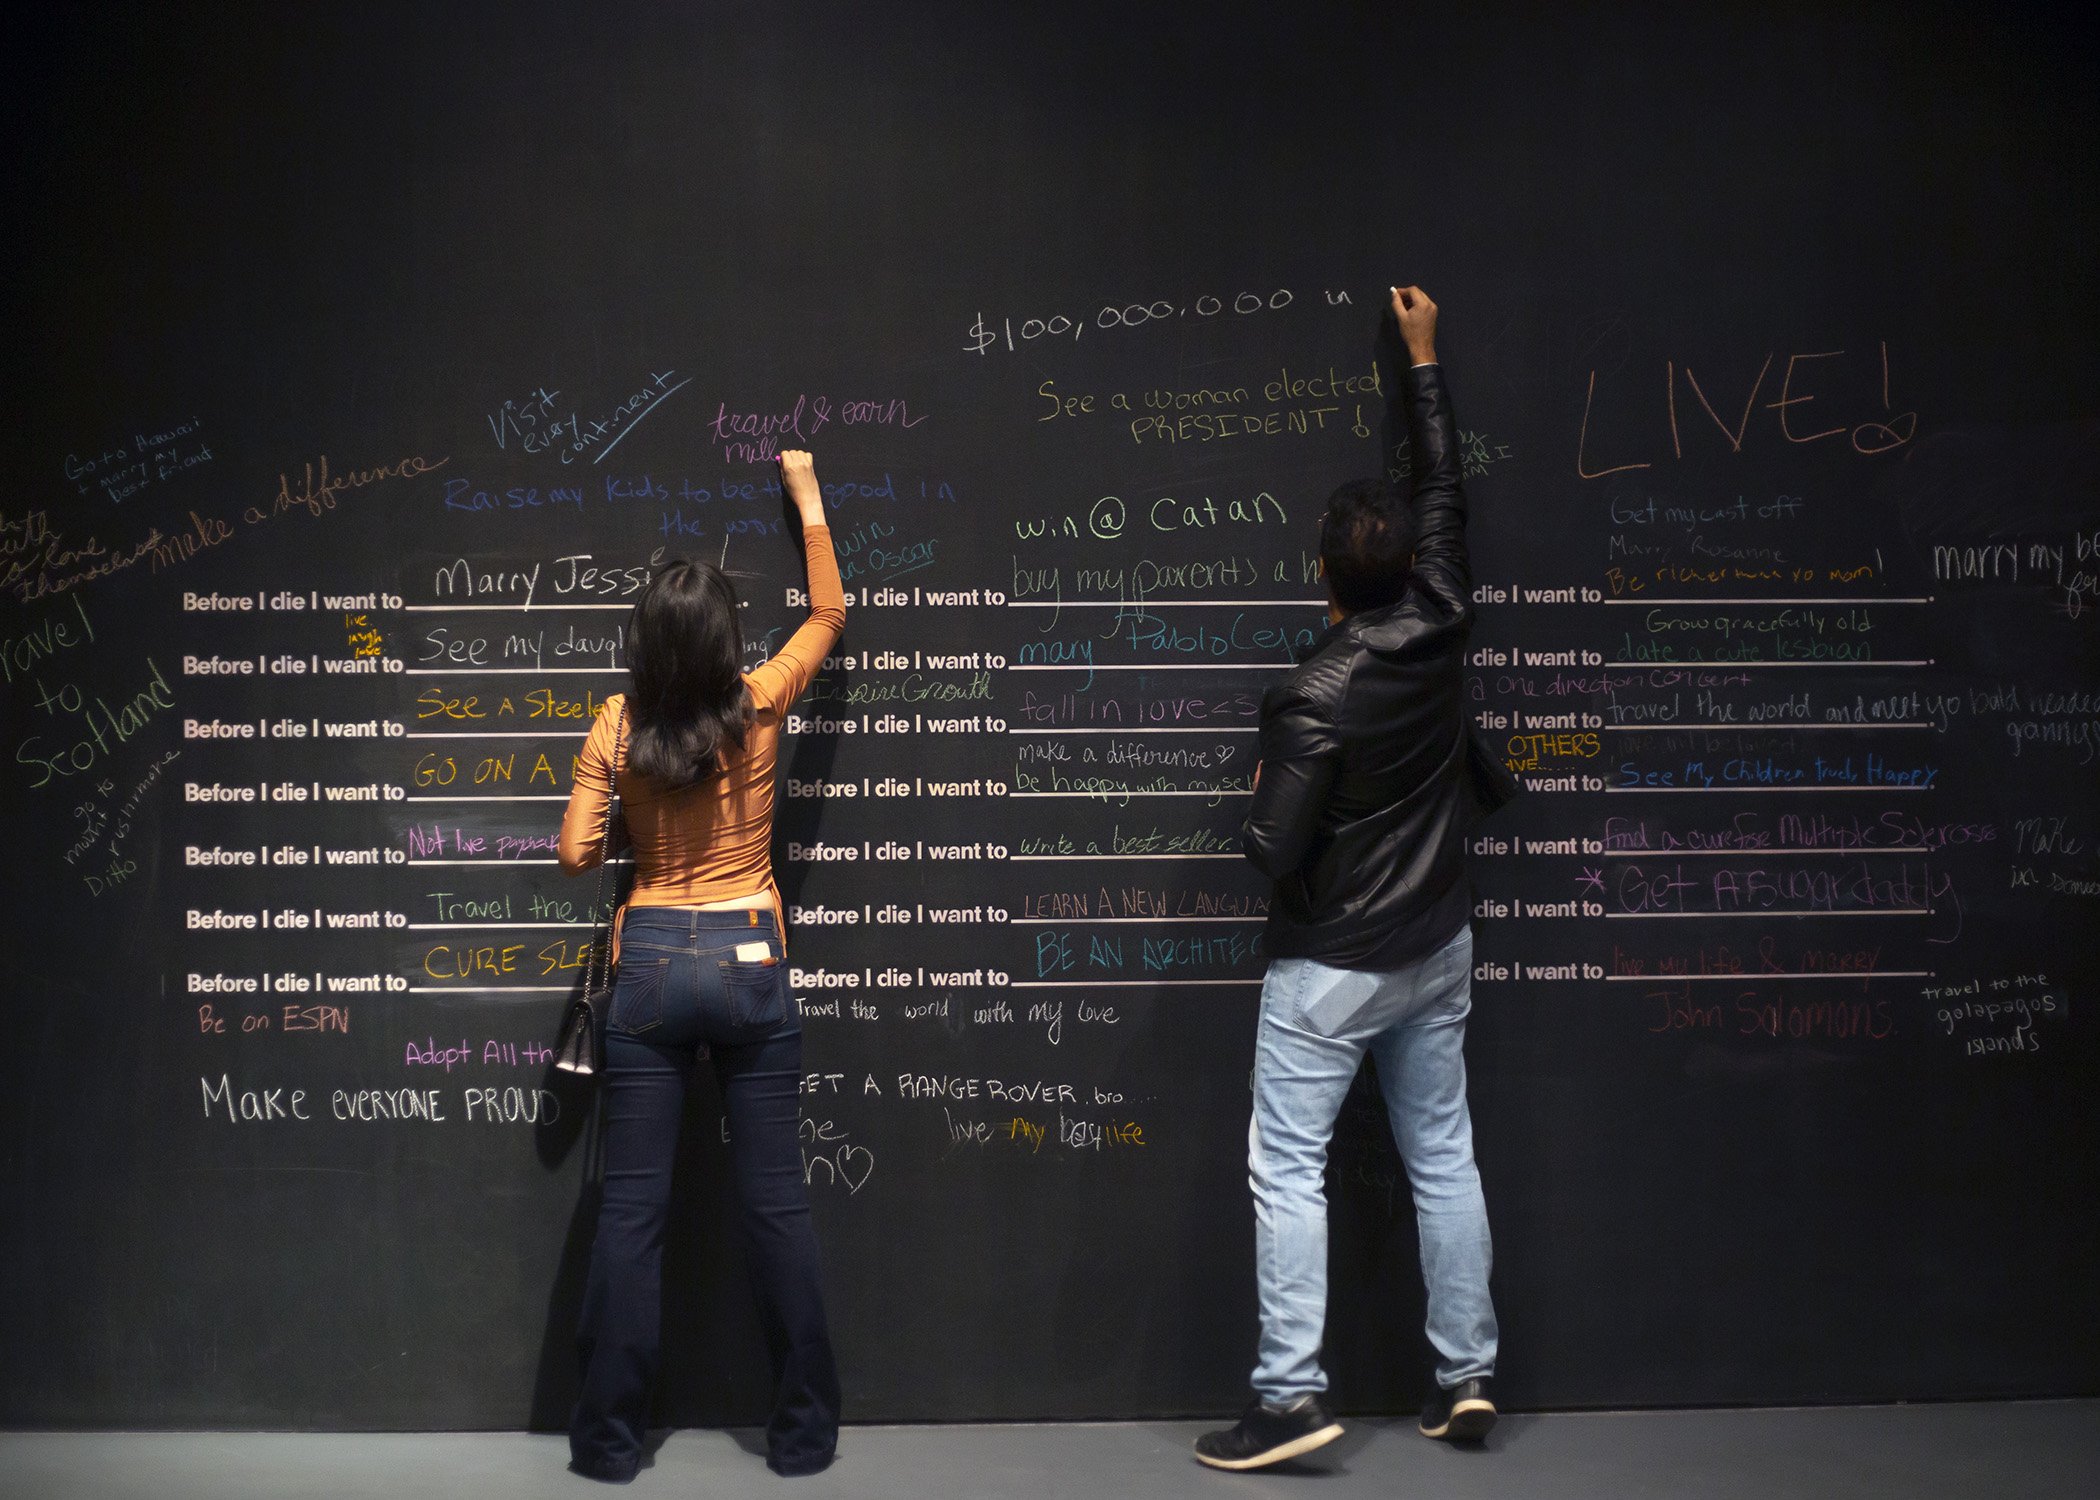 $100,000,000 in
See a woman elected
PRESIDENT!
LIVE!
Visit
every
continent
travel & earn
mill
Go to Hawaii
+ marry my
best friend
make a difference
Raise my kids to be good in
the
win
an Oscar
win @ Catan
Get my cast off
Marry Rosanne
Be richer than yo mom!
marry my
love
themselves
Before I die I want to Marry Jessie
Before I die I want to buy my parents a
die I want to
live
laugh
love
Before I die I want to See my
Before I die I want to mary Pablo
Grow gracefully old
die I want to date a cute lesbian
travel
to
Scotland
Inspire Growth
a one direction concert
Before I die I want to See A
Before I die I want to fall in love <3
die I want to travel the world and meet yo bald headed
granny
make a difference ♡
OTHERS
Before I die I want to GO ON A
Before I die I want to be happy with
want to See My Children Truly Happy
go to
mount
rushmore
Ditto
Before I die I want to Not live
Before I die I want to write a best seller
die I want to find a cure for Multiple Sclerosis
Make
in
Before I die I want to Travel the
Before I die I want to LEARN A NEW
die I want to * Get A Sugar daddy
Before I die I want to CURE
Before I die I want to BE AN
die I want to live my life & marry
John Solomons
travel to the
galapagos
islands
Be on ESPN
Travel the world with my love
Adopt All
Make everyone PROUD
GET A RANGE ROVER. bro.....
live my best life